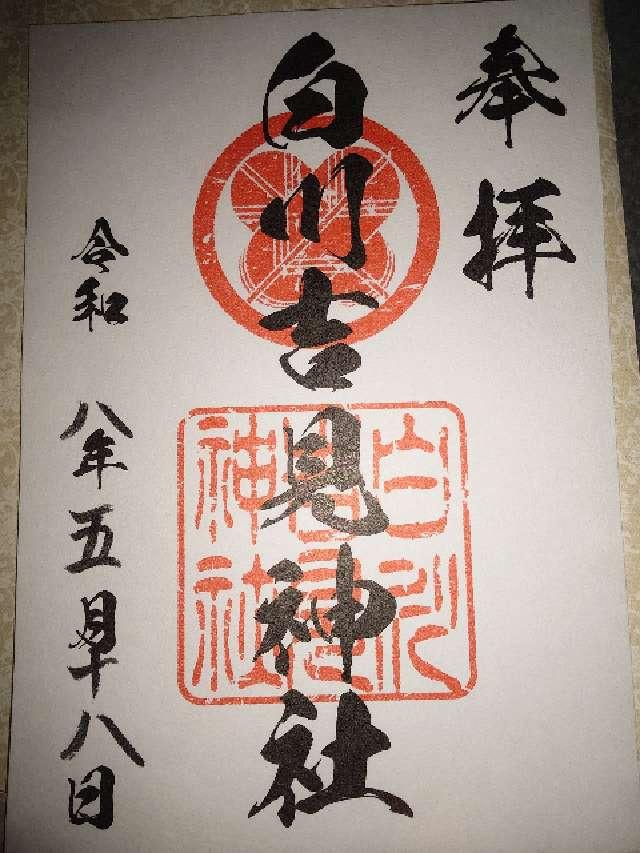 奉拝
白川吉見神社
白川吉見神社
令和 八年五月十八日